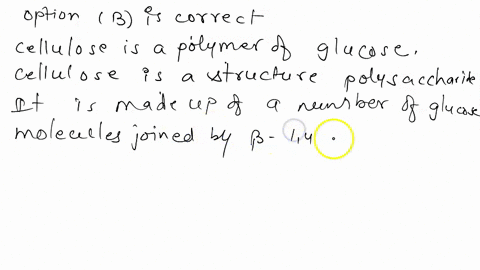 option (B) is correct
cellulose is a polymer of glucose.
cellulose is a structure polysaccharite
It is made up of a number of glucose
molecules joined by β- 1,4